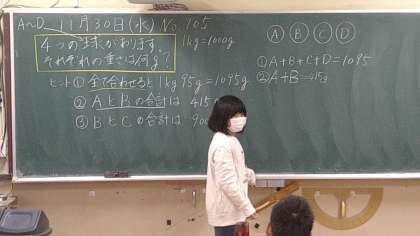 A〜D 11月30日(水) No.105
4つの球があります。
それぞれの重さは何g?
1kg=1000g
ヒント① 全て合わせると1kg95g=1095g
② AとBの合計は 415
③ BとCの合計は 900
Ⓐ Ⓑ Ⓒ Ⓓ
①A+B+C+D=1095
②A+B=415g